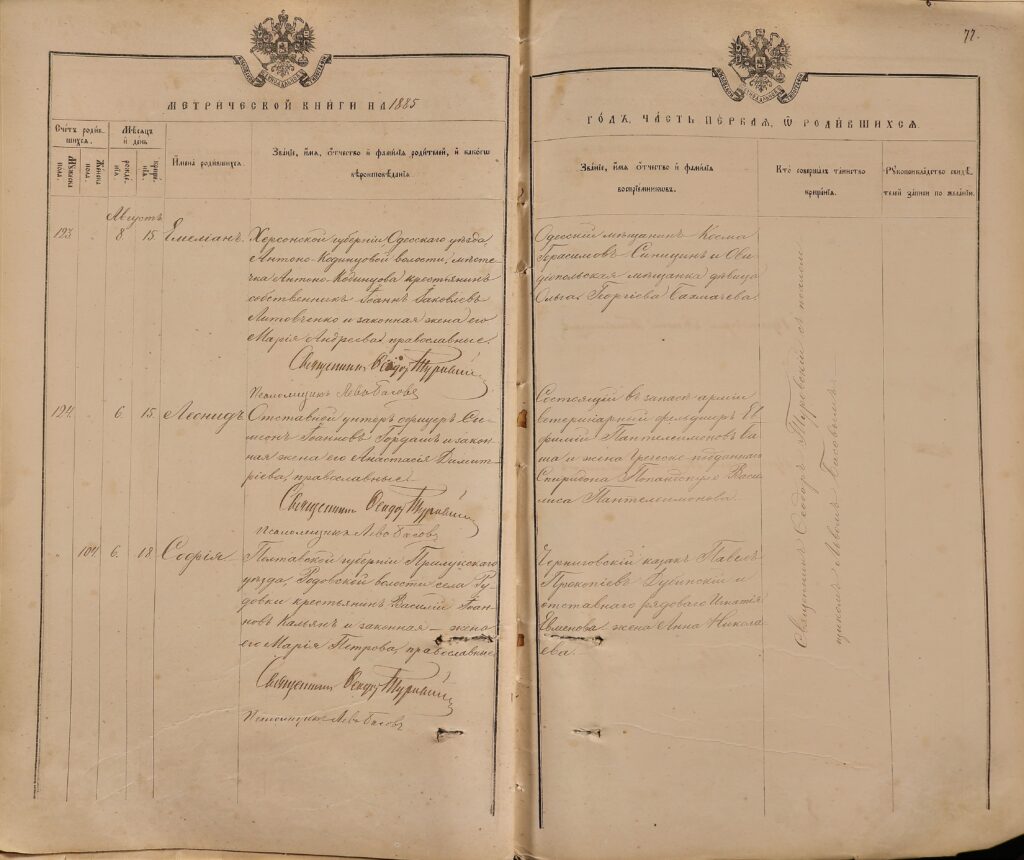 77.
МЕТРИЧЕСКОЙ КНИГИ НА 1885
ГОДЪ, ЧАСТЬ ПЕРВАЯ, Ѿ РОДИВШИХСЯ.
Счетъ родившихся.
Мужеска пола.
Женска пола.
Мѣсяцъ и день
рожденія.
крещенія.
Имена родившихся.
Званіе, имя, отчество и фамилія родителей, и какого вѣроисповѣданія
Званіе, имя отчество и фамилія воспріемниковъ.
Кто совершалъ таинство крещенія.
Рукоприкладство свидѣтелей записи по желанію.
Августъ
123. 8 15. Емеліанъ.
Херсонской губерніи Одесскаго уѣзда,
Антоно-Кодинцовой волости, мѣстечка Антоно-Кодинцова крестьянинъ
собственникъ Іоаннъ Іаковлевъ
Литовченко и законная жена его
Марія Андреева, православные.
Священникъ Ѳеодоръ Туровскій
Псаломщикъ Левъ Басовъ
Одесскій мѣщанинъ Косма
Герасимовъ Синицинъ и Овидіопольская мѣщанка дѣвица
Ольга Георгіева
124. 6. 15. Леонидъ.
Отставной унтеръ офицеръ Симеонъ Іоанновъ Гордашъ и законная жена его Анастасія Димитріева, православные.
Священникъ Ѳеодоръ Туровскій
Псаломщикъ Левъ Басовъ
Состоящій въ запасѣ арміи
ветеринарный фельдшеръ Ефимій Пантелеимоновъ
и жена греческо подданнаго
Спиридона Василиса Пантелеимонова.
104. 6. 18. Софія.
Полтавской губерніи Прилукскаго
уѣзда, Рудовской волости села Рудовки крестьянинъ Василій Іоанновъ и законная жена
его Марія Петрова, православные
Священникъ Ѳеодоръ Туровскій
Псаломщикъ Левъ Басовъ
Черниговскій казакъ Павелъ
Прокопіевъ Дубинскій и
отставнаго рядоваго Игнатія
Евменова жена Анна Николаева.
Священникъ Ѳеодоръ Туровскій съ псаломщикомъ Львомъ Басовымъ